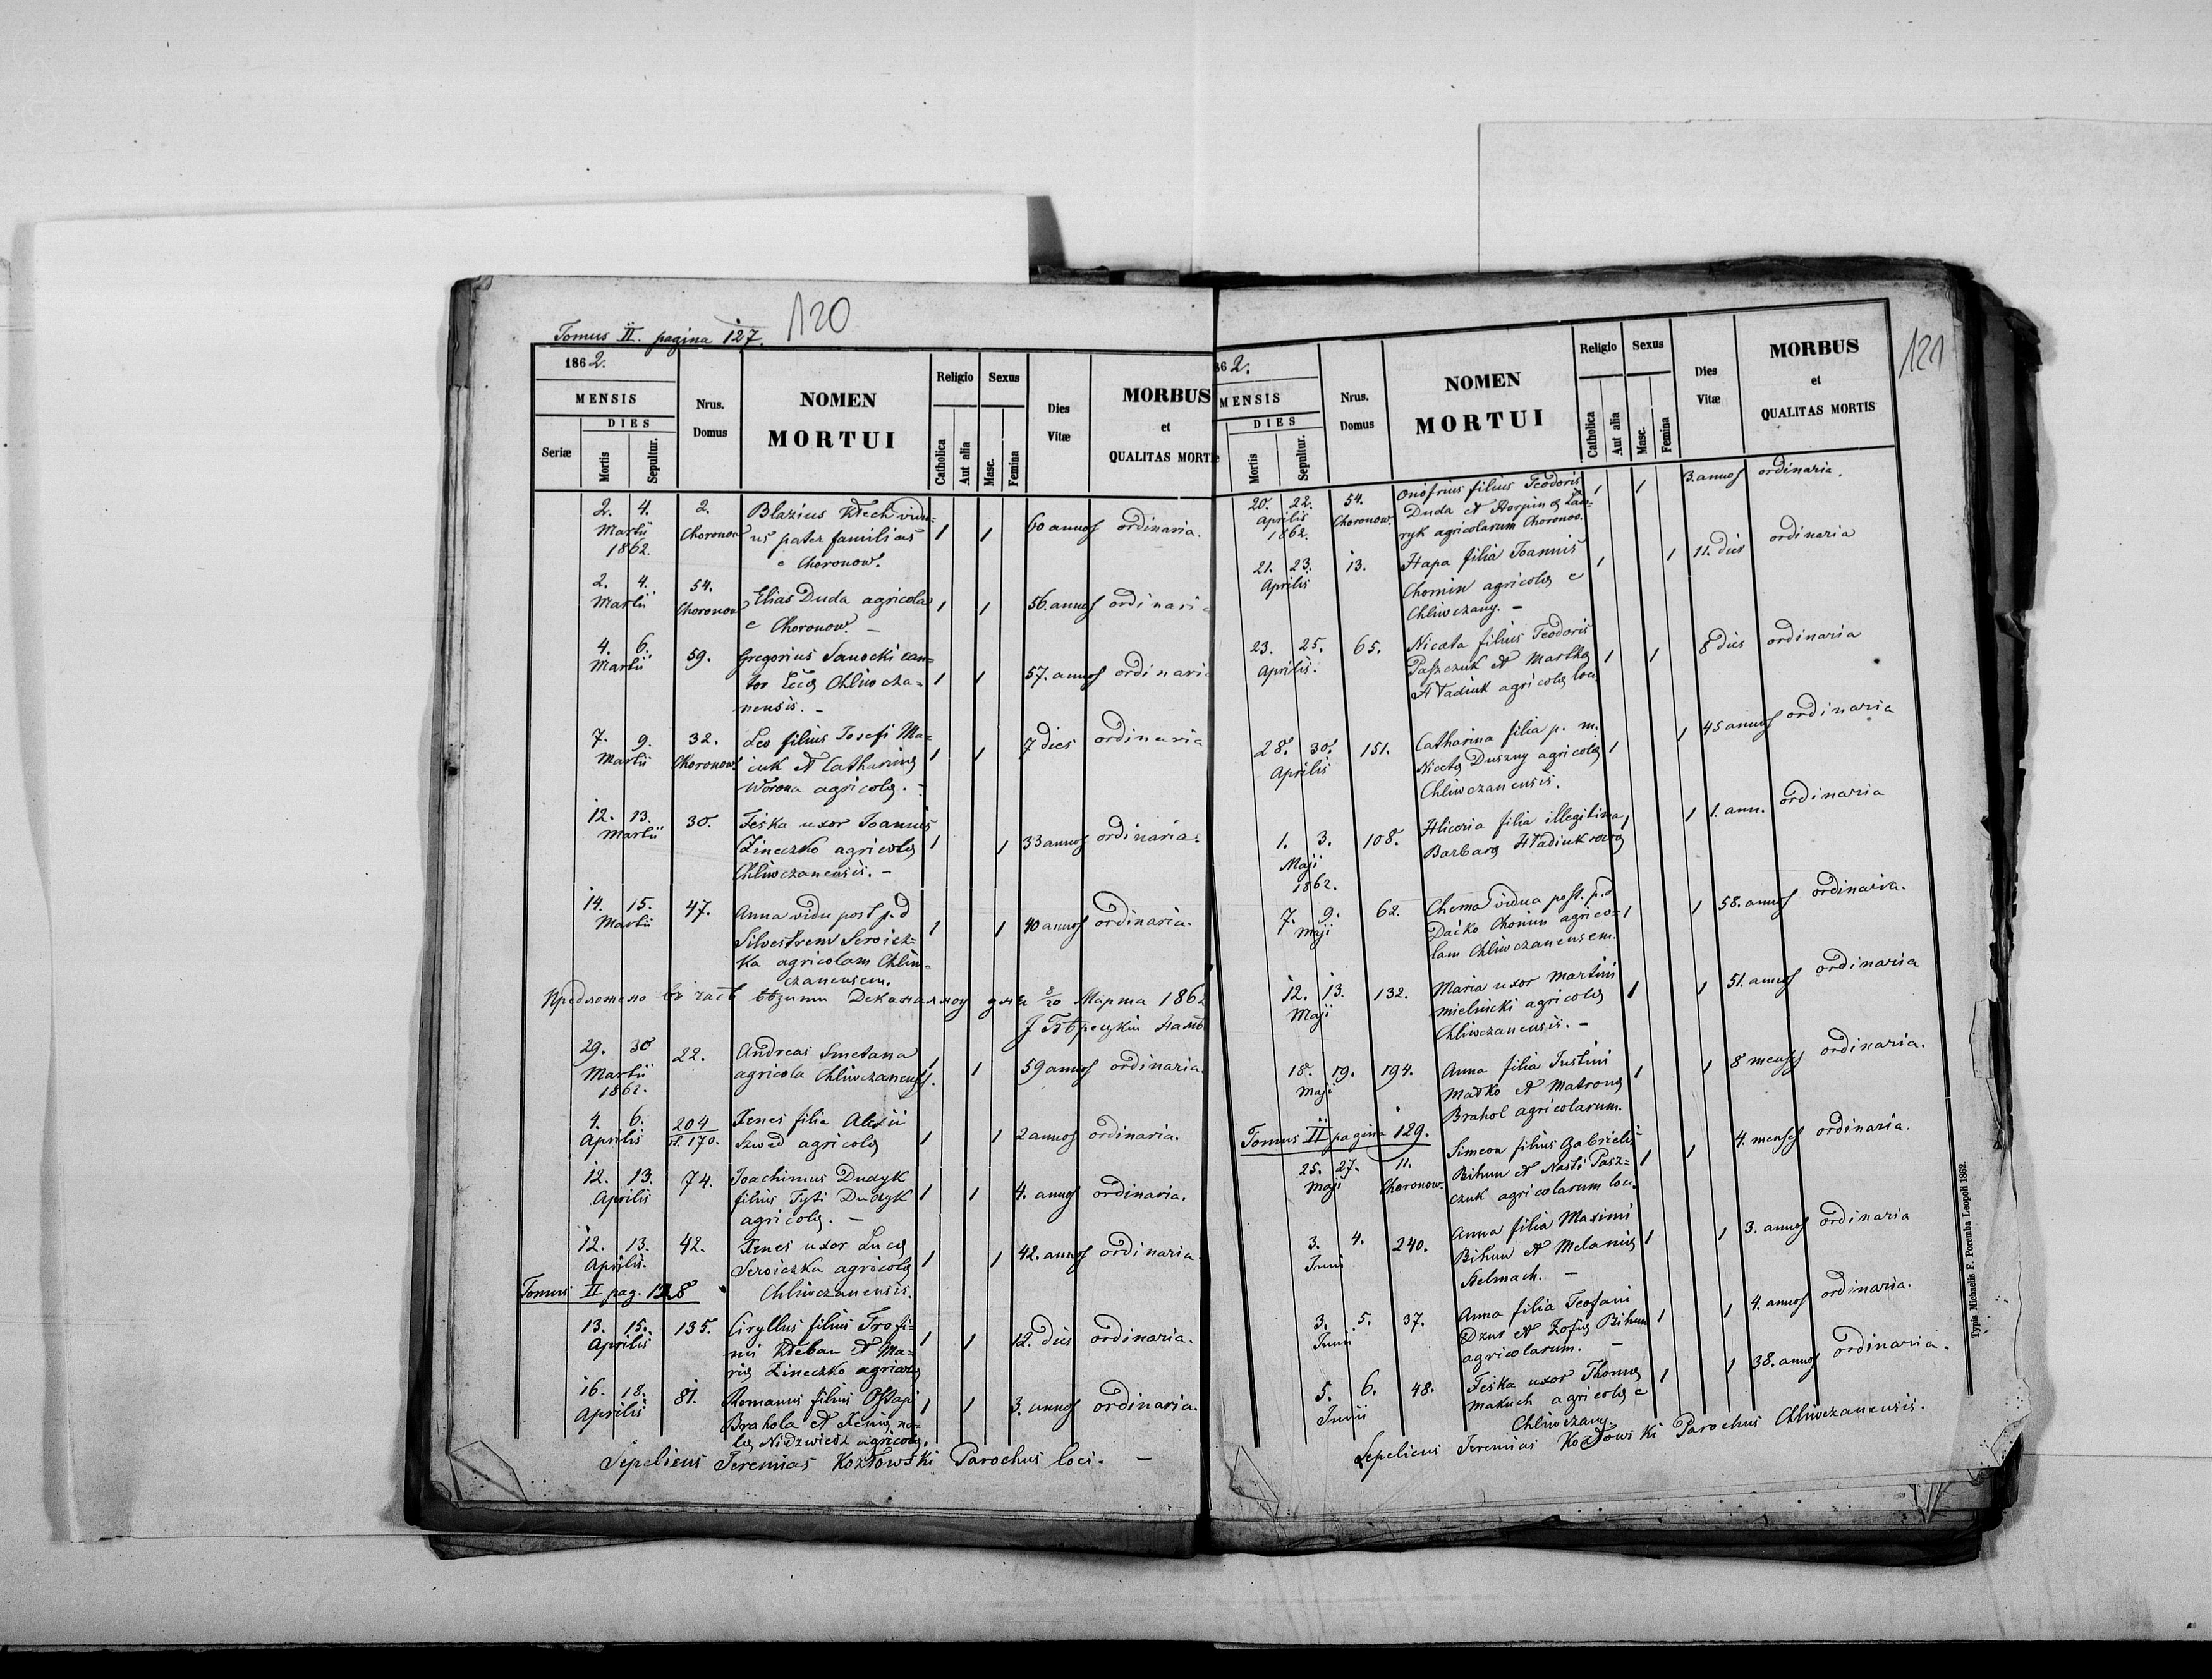 120
Tomus II. pagina 127.
1862.
MENSIS
DIES
Seriæ
Mortis
Sepultur.
Nrus. Domus
NOMEN
MORTUI
Religio
Catholica
Aut alia
Sexus
Masc.
Femina
Dies Vitæ
MORBUS
et
QUALITAS MORTI
2. 4. 2. Blazius Kłech vidu=
Martii Choronow us pater familias 1 1 60 annos ordinaria.
1862. e Choronow.
2. 4. 54.
Martii Choronow Elias Duda agricola 1 1 56. annos ordinaria
e Choronow. –
4. 6. 59. Gregorius Sanocki can=
Martii tor Chliwcza= 1 1 57. annos ordinari
nensis. –
7. 9. 32. Leo filius Josefi Ma=
Martii Choronow. ciuk et Catharinę 1 1 7 dies ordinaria
Worona agricolę. –
12. 13. 30. Feska uxor Joannis
Martii Zineczko agricolę 1 1 33 annos ordinaria.
Chliwczanensis. –
14. 15. 47. Anna vidu post p. d
Martii Silvestrem Seroicz= 1 1 40 annos ordinaria.
ka agricolam Chliw=
czanensem.
Предложено Деканал дня 8/20 Марта 186
29. 30 22. Andreas Smetana
Martii agricola Chliwczanensis. 1 1 59 annos ordinaria.
1862.
4. 6. 204 Xenes filia Alexii
Aprilis 170. Szwed agricolę 1 1 2 annos ordinaria.
12. 13. 74. Joachimus Dudyk
Aprilis filius Tyti Dudyk 1 1 4. annos ordinaria.
agricolę. –
12. 13. 42. Xenes uxor Lucę
Aprilis. Seroiczka agricolę 1 1 42. annos ordinaria.
Tomus II pag. 128 Chliwczanensis.
13. 15. 135. Ciryllus filius Trofi=
Aprilis mi Kłeban et Ma= 1 1 12. dies ordinaria.
rię Zineczko agricolę
16. 18. 81. Romanus filius Ostapi
Aprilis Brahola et Xenię na= 1 1 3. annos ordinaria.
lę Nidzwiedz agricolę.
Sepeliens Jeremias Kozłowski Parochus loci. –
121
862.
MENSIS
DIES
Mortis
Sepultur.
Nrus. Domus
NOMEN
MORTUI
Religio
Catholica
Aut alia
Sexus
Masc.
Femina
Dies Vitæ
MORBUS
et
QUALITAS MORTIS
20. 22. 54. Onofrius filius Teodoris 1 1 3. annos ordinaria.
Aprilis Choronow. Duda et Horpinę Ław=
1862. ryk agricolarum Choronow.
21. 23. 13. Hapa filia Joannis 1 1 11. dies ordinaria
Aprilis Chomin agricolę e
Chliwczany. –
23. 25. 65. Nicæta filius Teodoris
Aprilis. Paszczuk et Marthę 1 1 8 dies ordinaria
Hładiuk agricolę loci
28. 30. 151. Catharina filia p. m. 1 45 annos ordinaria
Aprilis Nicetę Duszny agricolę 1
Chliwczanensis.
1. 3. 108. Hliceria filia illegitima 1 1 1. ann. ordinaria
Maji Barbarę Hładiuk
1862.
7. 9. 62. Chema vidua post. p. d 1 58. annos ordinaria.
Maji Dacko Chomin agrico= 1
lam Chliwczanensem.
12. 13. 132. Maria uxor Martini 1 51. annos ordinaria
Maji Mielnicki agricolę 1
Chliwczanensis. –
18. 19. 194. Anna filia Justini 1 8 menses ordinaria.
Maji Małko et Matronę 1
Brahol agricolarum.
Tomus II pagina 129.
25. 27. 11. Simeon filius Gabrielis 4. menses ordinaria.
Maji Choronow. Bihun et Nasti Pasz= 1 1
czuk agricolarum loci.
3. 4. 240. Anna filia Maximi
Junii Bihun et Melanię 1 1 3. annos ordinaria
Kelmach. –
3. 5. 37. Anna filia Teofani
Junii Dzus et Zofię Bihun 1 1 4. annos ordinaria.
agricolarum. –
5. 6. 48. Feska uxor Thomę 1 1 38. annos ordinaria.
Junii Makuch agricolę e
Chliwczany.
Sepeliens Jeremias Kozłowski Parochus Chliwczanensis.
Typis Michaelis F. Poremba Leopoli 1862.